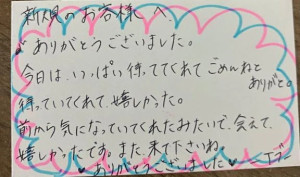 新規のお客様へ
ありがとうございました。
今日は、いっぱい待っててくれて ごめんねと
ありがと。
待っていてくれて、嬉しかった。
前から気になっていてくれたみたいで、会えて
嬉しかったです。また、来て下さいね。
ありがとうございました